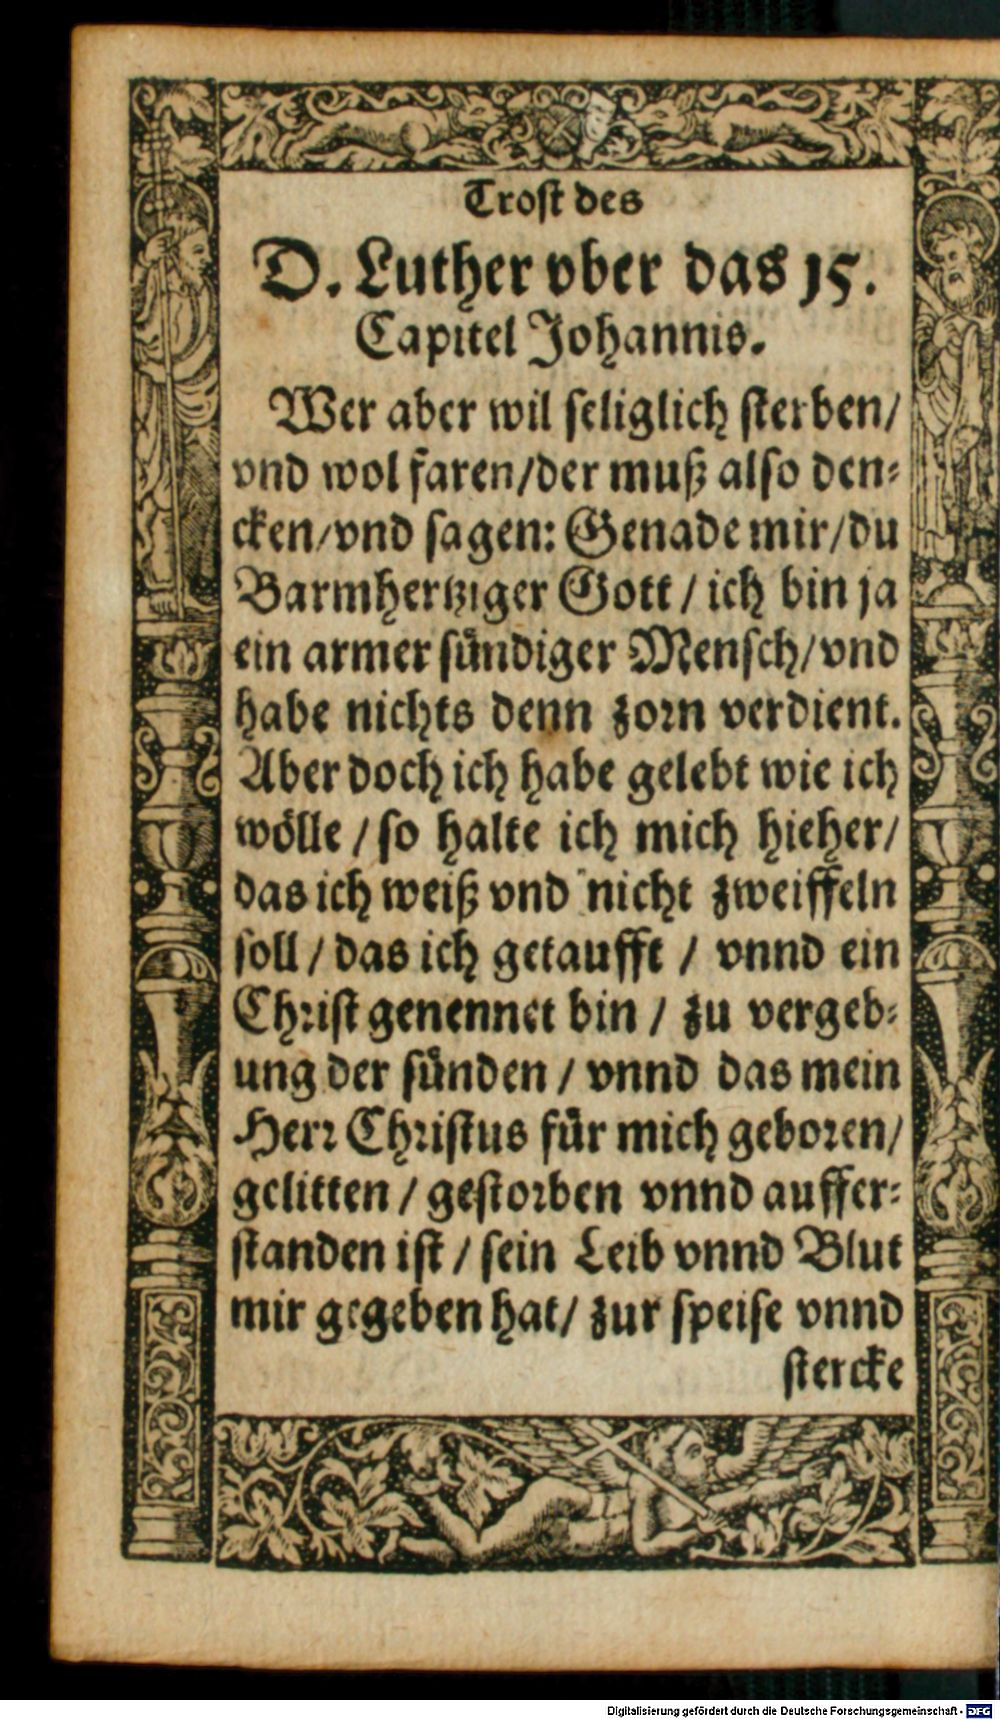 Trost des
D. Luther vber das 15.
Capitel Johannis.
Wer aber wil seliglich sterben/
vnd wol faren/der muß also den-
cken/vnd sagen: Genade mir/du
Barmhertziger Gott / ich bin ja
ein armer sündiger Mensch/vnd
habe nichts denn zorn verdient.
Aber doch ich habe gelebt wie ich
wölle / so halte ich mich hieher/
das ich weiß vnd nicht zweiffeln
soll / das ich getaufft / vnnd ein
Christ genennet bin / zu vergeb-
ung der sünden / vnnd das mein
Herr Christus für mich geboren/
gelitten / gestorben vnnd auffer-
standen ist / sein Leib vnnd Blut
mir gegeben hat/ zur speise vnnd
stercke
Digitalisierung gefördert durch die Deutsche Forschungsgemeinschaft - DFG